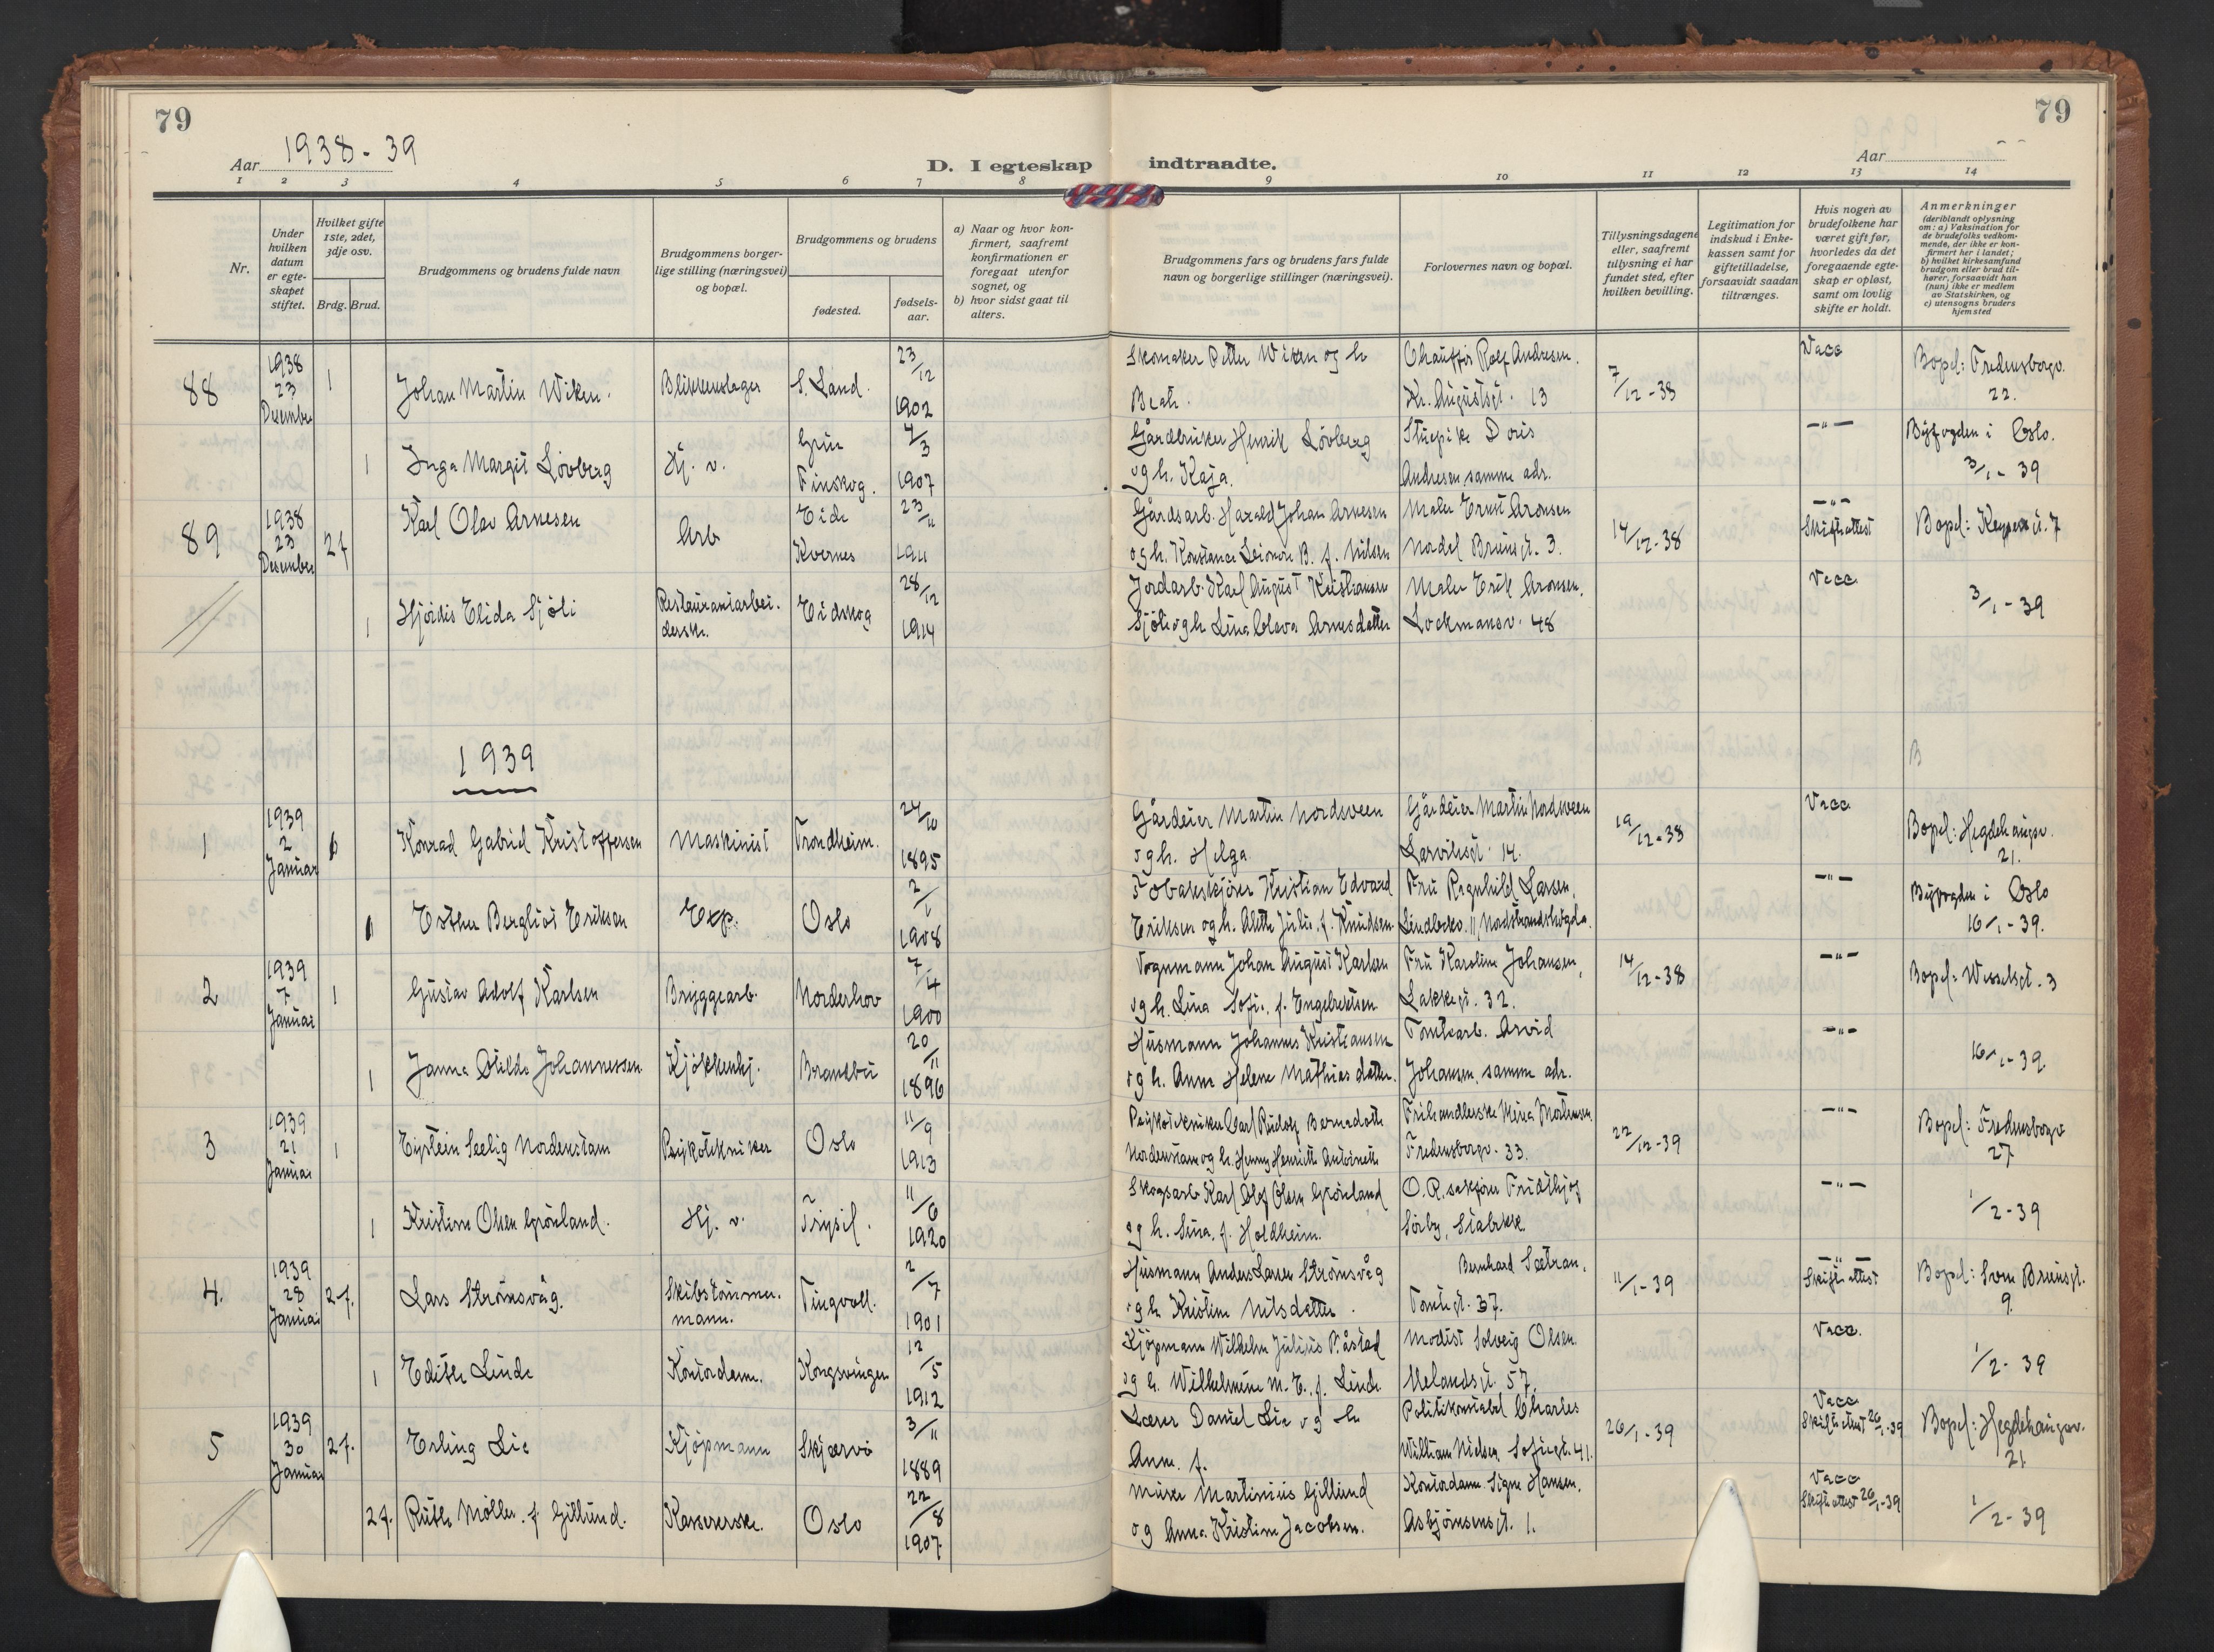 79
79
Aar 1938-39
D. I egteskap indtraadte.
Aar
1 2 3 4 5 6 7 8 9 10 11 12 13 14
Nr.
Under hvilken datum er egteskapet stiftet.
Hvilket gifte 1ste, 2det, 3dje osv.
Brdg. Brud.
Brudgommens og brudens fulde navn
Brudgommens borgerlige stilling (næringsvei) og bopæl.
Brudgommens og brudens
fødested.
fødselsaar.
a) Naar og hvor konfirmert, saafremt konfirmationen er foregaat utenfor sognet, og
b) hvor sidst gaat til alters.
Brudgommens fars og brudens fars fulde navn og borgerlige stillinger (næringsvei).
Forlovernes navn og bopæl.
Tillysningsdagene eller, saafremt tillysning ei har fundet sted, efter hvilken bevilling.
Legitimation for indskud i Enkekassen samt for giftetilladelse, forsaavidt saadan tiltrænges.
Hvis nogen av brudefolkene har været gift før, hvorledes da det foregaaende egteskap er opløst, samt om lovlig skifte er holdt.
Anmerkninger (deriblandt oplysning om: a) Vaksination for de brudefolks vedkommende, der ikke er konfirmert her i landet; b) hvilket kirkesamfund brudgom eller brud tilhører, forsaavidt han (hun) ikke er medlem av Statskirken, og c) utensogns bruders hjemsted
88 1938 23 Desember 1 Johan Martin Wiken. Blikkenslager S. Land. 23/12 1902 Skomaker Petter Wiken og h Beate. Chauffør Rolf Andresen. Kr. Augustsgt. 13 7/12-38 Vacc Bopel: Fredensborgv. 22.
1 Inga Margit Løvberg Hj. v. Grue Finskog. 4/3 1907 Gårdbruker Henrik Løvberg og h. Kaja. Stuepike Doris Andresen, samme adr. -"- Byfogden i Oslo. 3/1-39
89 1938 23 Desember 2f Karl Olav Arnesen Arb Eide Kvernes 23/11 1911 Gårdsarb. Harald Johan Arnesen og h. Konstance Leonore B. f. Nilsen Maler Ernst Aronsen Nordal Brunsgt. 3. 14/12-38 -"- Skifteattest Bopel: Keysersgt. 7
1 Hjørdis Elida Sjøli Restaurantarbeiderske. Eidskog 28/12 1914 Jordarb. Karl August Kristiansen Sjøli og h Lina Oleva Arnesdatter Maler Erik Aronsen. Lockmansv. 48 Vacc 3/1-39
1939
B
1 1939 2 Januar Konrad Gabriel Kristoffersen Maskinist Trondheim. 24/10 1895 Gårdeier Martin Nordsveen og h. Helga Gårdeier Martin Nordsveen Larviksgt. 14. 19/12-38 Vacc Bopel: Hegdehaugsv. 21.
Esther Bergliot Eriksen Exp. Oslo 2/1 1908 Tobakskjører Kristian Edvard Eriksen og h. Alette Julie. f. Knudsen Fru Ragnhild Larsen, Lindbeks. 11, Nordstrandshøgda. -"- Byfogden i Oslo 16/1-39.
2 1939 7 Januar 1 Gustav Adolf Karlsen Bryggearb. Norderhov 7/4 1900 Vognmann Johan August Karlsen og h. Lina Sofie, f. Engebretsen Fru Karoline Johansen, Lakkegt. 32. 14/12-38 -"- Bopel: Wesselsgt. 3
1 Janna Otilde Johannessen Kjøkkenhj. Brandbu 20/11 1896 Husmann Johannes Kristiansen og h. Anne Helene Mathiasdatter. Tomtearb. Arvid Johansen, samme adr. -"- 16/1-39.
3 1939 21 Januar 1 Eystein Seelig Nordenstam Psykotekniker Oslo 11/9 1913 Psykotekniker Carl Rudolf Bernadotte Nordenstam og h. Henny Henriette Antoinette Frihandlerske Mina Mortensen Fredensborgv. 33. 22/12-39 -"- Bopel: Fredensborgv 27
1 Kristine Olsen Grønland. Hj. v. Trysil. 11/6 1920 Skogsarb Karl Olaf Olsen Grønland og h. Lina. f. Holdheim. O.R.sakfører Fridthjof Sørby, Stabekk. -"- 1/2-39
4. 1939 28 Januar 2f. Lars Strømsvåg. Skibstømmermann. Tingvoll. 2/7 1901 Husmann Anders Larsen Strømsvåg og h Kristine Nilsdatter. Bernhard Sætran, Tomtegt. 37. 11/1-39 -"- Skifteattest Bopel: Sven Brunsgt. 9.
1 Edith Linde Kontordame. Kongsvinger 12/5 1912 Kjøpmann Wilhelm Julius Råstad og h. Wilhelmine M. E. f. Linde Modist Solveig Olsen. Uelandsgt. 57. Vacc. 1/2-39
5 1939 30 Januar 2f. Erling Lie Kjøpmann Skjærvø 3/11 1889 Lærer Daniel Lie og h Anne. f. Politikonstabel Charles William Nielsen, Sofiesgt. 41. 26/1-39 Vacc Skifteattest 26/1-39 Bopel: Hegdehaugsv. 21
2f. Ruth Møller. f Gillund. Kassererske. Oslo 22/8 1907 Murer Martinius Gillund og Anna Kristine Jacobsen. Kontordame Signe Hansen, Asbjørnsensgt. 1. Vacc Skifteattest 26/1-39 1/2-39